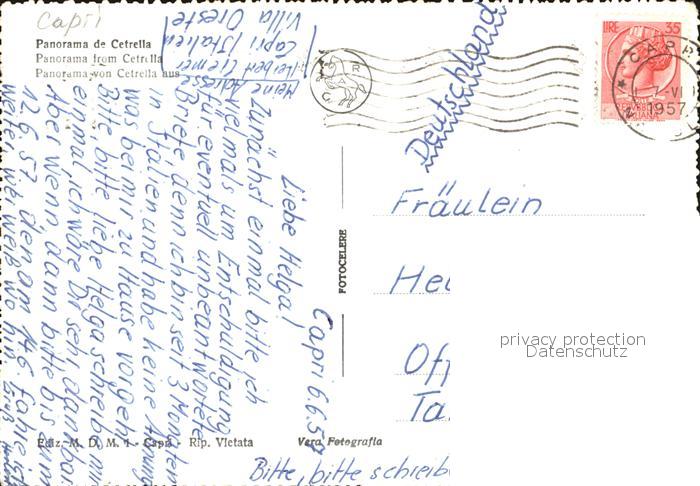 Capri
Panorama de Cetrella
Panorama from Cetrella
Panorama von Cetrella aus
Meine Adresse:
Herbert
Capri / Italien
Villa Oreste
Deutschland
LIRE 35
CAPRI
7-VI
1957
Fräulein
Hel
Off
Ta
privacy protection
Datenschutz
FOTOCELERE
Capri 6.6.57
Liebe Helga!
Zunächst einmal bitte ich
vielmals um Entschuldigung
für eventuell unbeantwortete
Briefe, denn ich bin seit 3 Monaten
in Italien und habe keine Ahnung
was bei mir zu Hause vorgeht.
Bitte, bitte liebe Helga schreibe mir
einmal, ich wäre Dir sehr dankbar.
Aber wenn, dann bitte bis zum
12.6.57 denn am 14.6 fahre ich
weiter,
Bitte, bitte schreib
Ediz. M. D. M. 1 - Capri - Rip. Vietata
Vera Fotografia